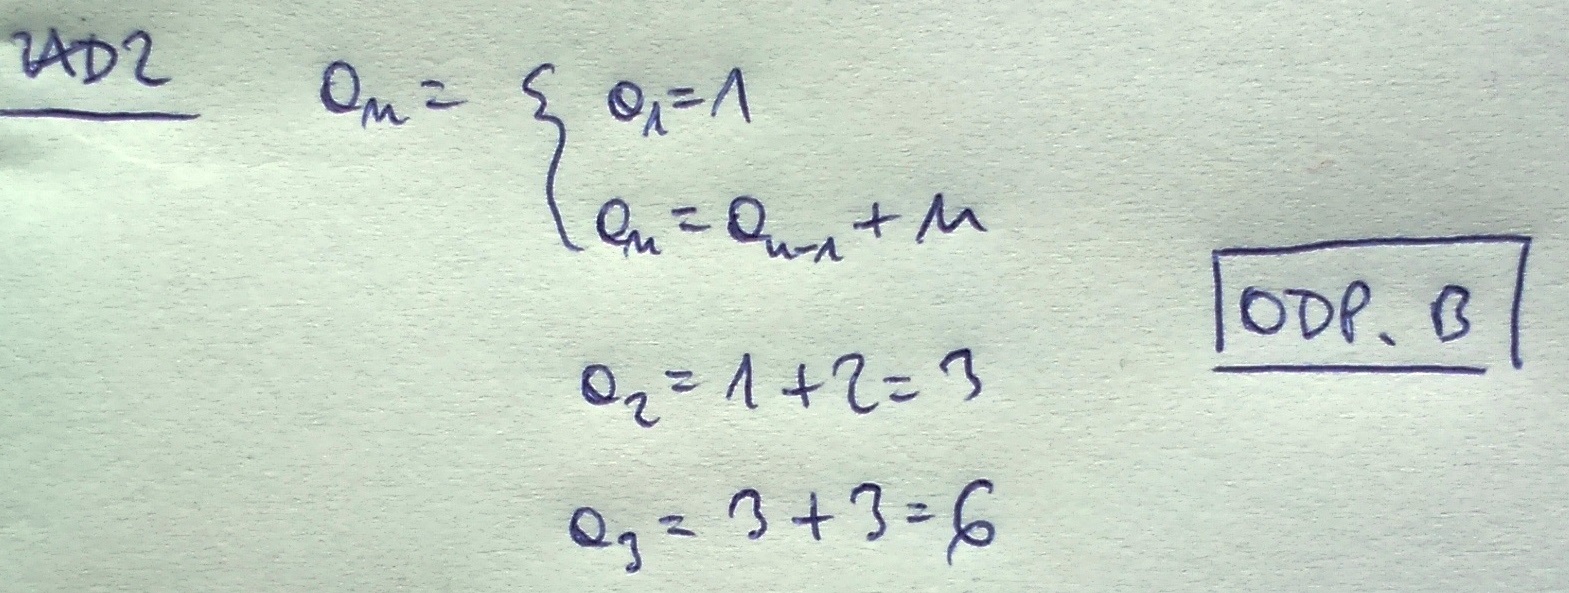 ZAD2
aₙ = { a₁=1
aₙ = aₙ₋₁ + n
ODP. B
a₂ = 1+2=3
a₃ = 3+3=6